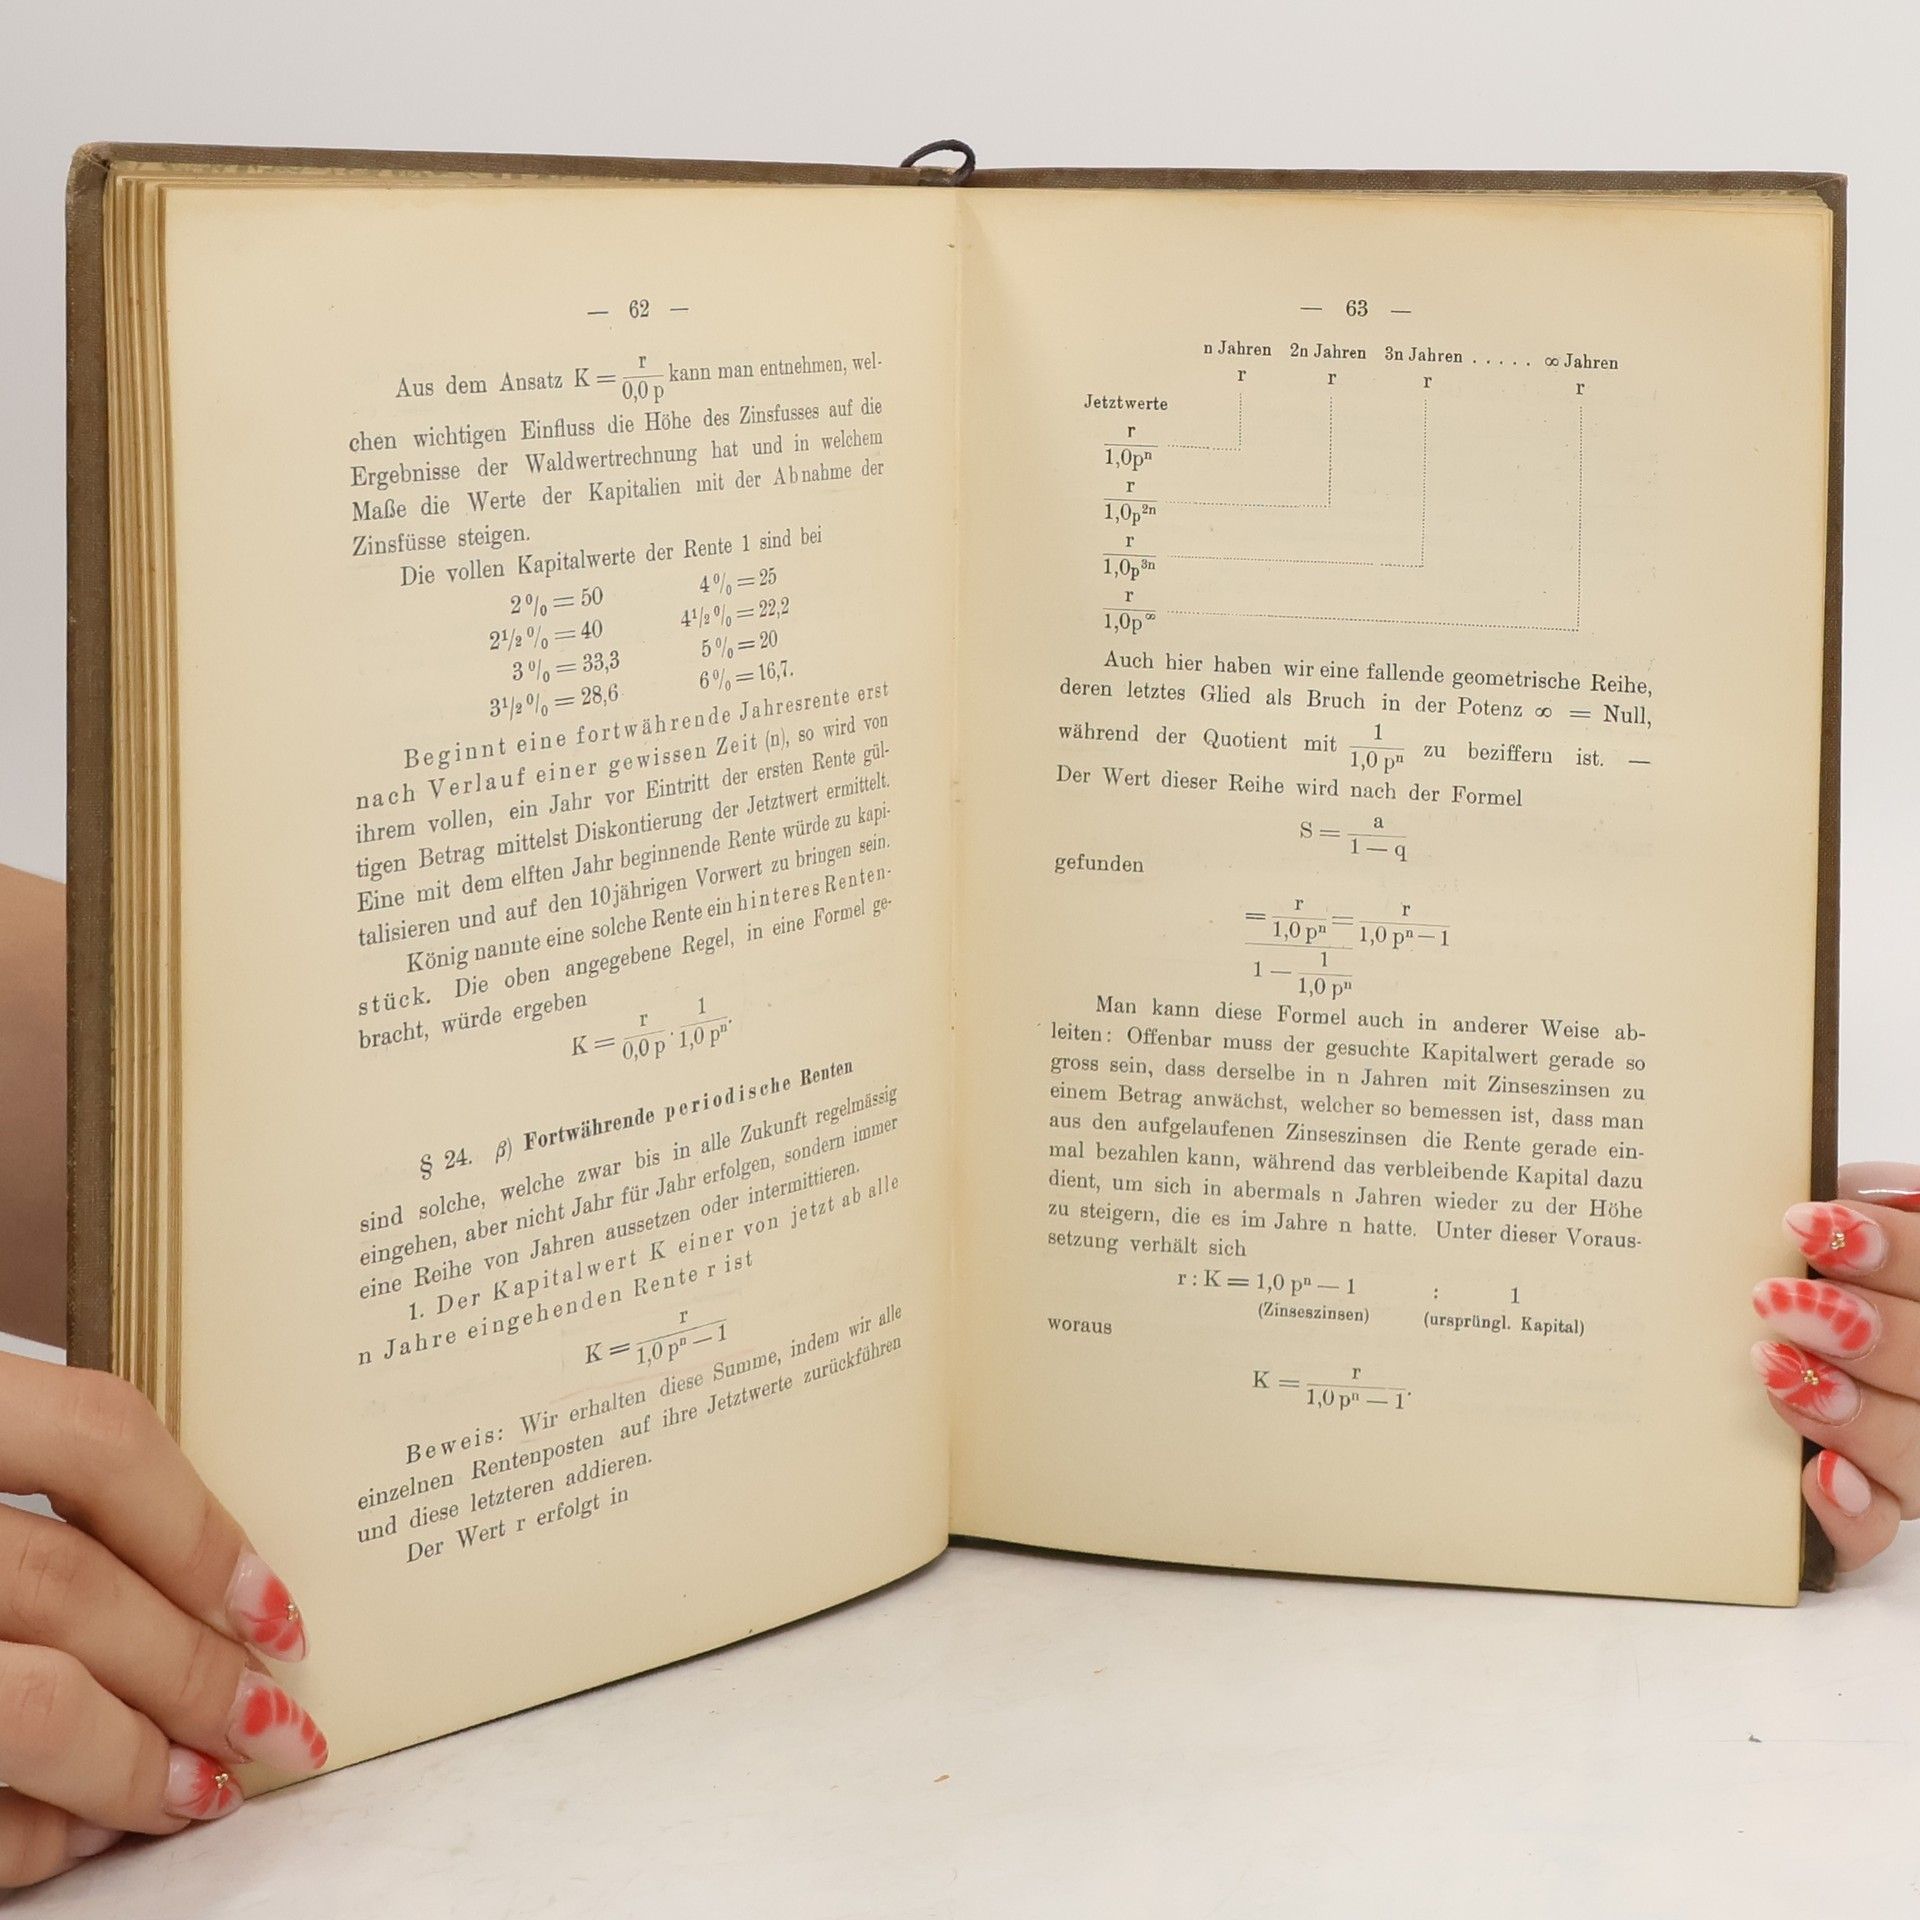 — 62 —
Aus dem Ansatz K = r/0,0 p kann man entnehmen, wel-
chen wichtigen Einfluss die Höhe des Zinsfusses auf die
Ergebnisse der Waldwertrechnung hat und in welchem
Maße die Werte der Kapitalien mit der Abnahme der
Zinsfüsse steigen.
Die vollen Kapitalwerte der Rente 1 sind bei
2 % = 50 4 % = 25
2 1/2 % = 40 4 1/2 % = 22,2
3 % = 33,3 5 % = 20
3 1/2 % = 28,6 6 % = 16,7.
Beginnt eine fortwährende Jahresrente erst
nach Verlauf einer gewissen Zeit (n), so wird von
ihrem vollen, ein Jahr vor Eintritt der ersten Rente gül-
tigen Betrag mittelst Diskontierung der Jetztwert ermittelt.
Eine mit dem elften Jahr beginnende Rente würde zu kapi-
talisieren und auf den 10jährigen Vorwert zu bringen sein.
König nannte eine solche Rente ein hinteres Renten-
stück. Die oben angegebene Regel, in eine Formel ge-
bracht, würde ergeben
K = r/0,0 p · 1/1,0 pⁿ.
§ 24. β) Fortwährende periodische Renten
sind solche, welche zwar bis in alle Zukunft regelmässig
eingehen, aber nicht Jahr für Jahr erfolgen, sondern immer
eine Reihe von Jahren aussetzen oder intermittieren.
1. Der Kapitalwert K einer von jetzt ab alle
n Jahre eingehenden Rente r ist
K = r/1,0 pⁿ — 1
Beweis: Wir erhalten diese Summe, indem wir alle
einzelnen Rentenposten auf ihre Jetztwerte zurückführen
und diese letzteren addieren.
Der Wert r erfolgt in
— 63 —
n Jahren 2n Jahren 3n Jahren . . . . . ∞ Jahren
r r r r
Jetztwerte
r/1,0pⁿ
r/1,0p²ⁿ
r/1,0p³ⁿ
r/1,0p^∞
Auch hier haben wir eine fallende geometrische Reihe,
deren letztes Glied als Bruch in der Potenz ∞ = Null,
während der Quotient mit 1/1,0 pⁿ zu beziffern ist. —
Der Wert dieser Reihe wird nach der Formel
S = a/1 — q
gefunden
= r/1,0 pⁿ = r/1,0 pⁿ — 1
1 — 1/1,0 pⁿ
Man kann diese Formel auch in anderer Weise ab-
leiten: Offenbar muss der gesuchte Kapitalwert gerade so
gross sein, dass derselbe in n Jahren mit Zinseszinsen zu
einem Betrag anwächst, welcher so bemessen ist, dass man
aus den aufgelaufenen Zinseszinsen die Rente gerade ein-
mal bezahlen kann, während das verbleibende Kapital dazu
dient, um sich in abermals n Jahren wieder zu der Höhe
zu steigern, die es im Jahre n hatte. Unter dieser Voraus-
setzung verhält sich
r : K = 1,0 pⁿ — 1 : 1
(Zinseszinsen) (ursprüngl. Kapital)
woraus
K = r/1,0 pⁿ — 1.